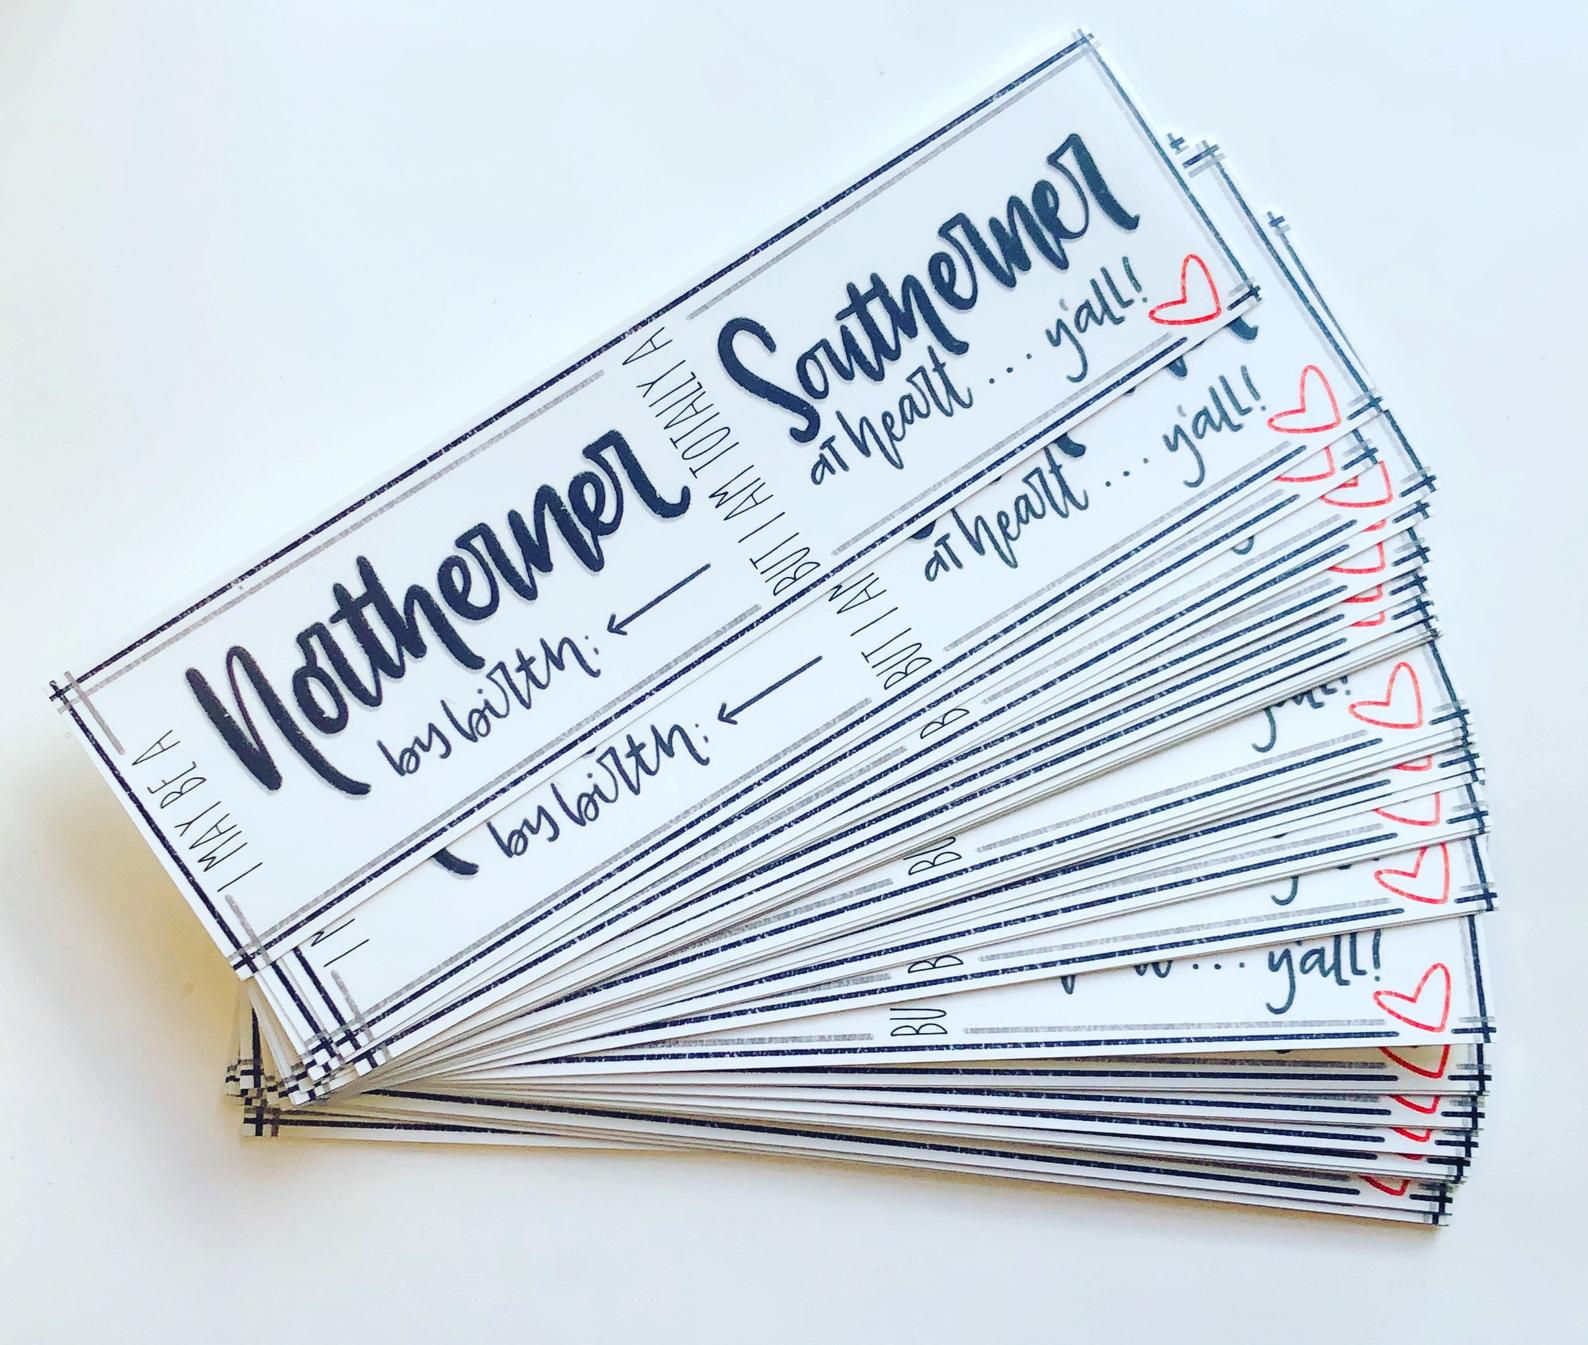 I MAY BE A
Northerner
by birth:
BUT I AM TOTALLY A
Southerner
at heart ... y'all!
I M
by birth:
BUT I AM
at heart ... y'all!
B
y'all!
BU
BU
B
... y'all!
BU